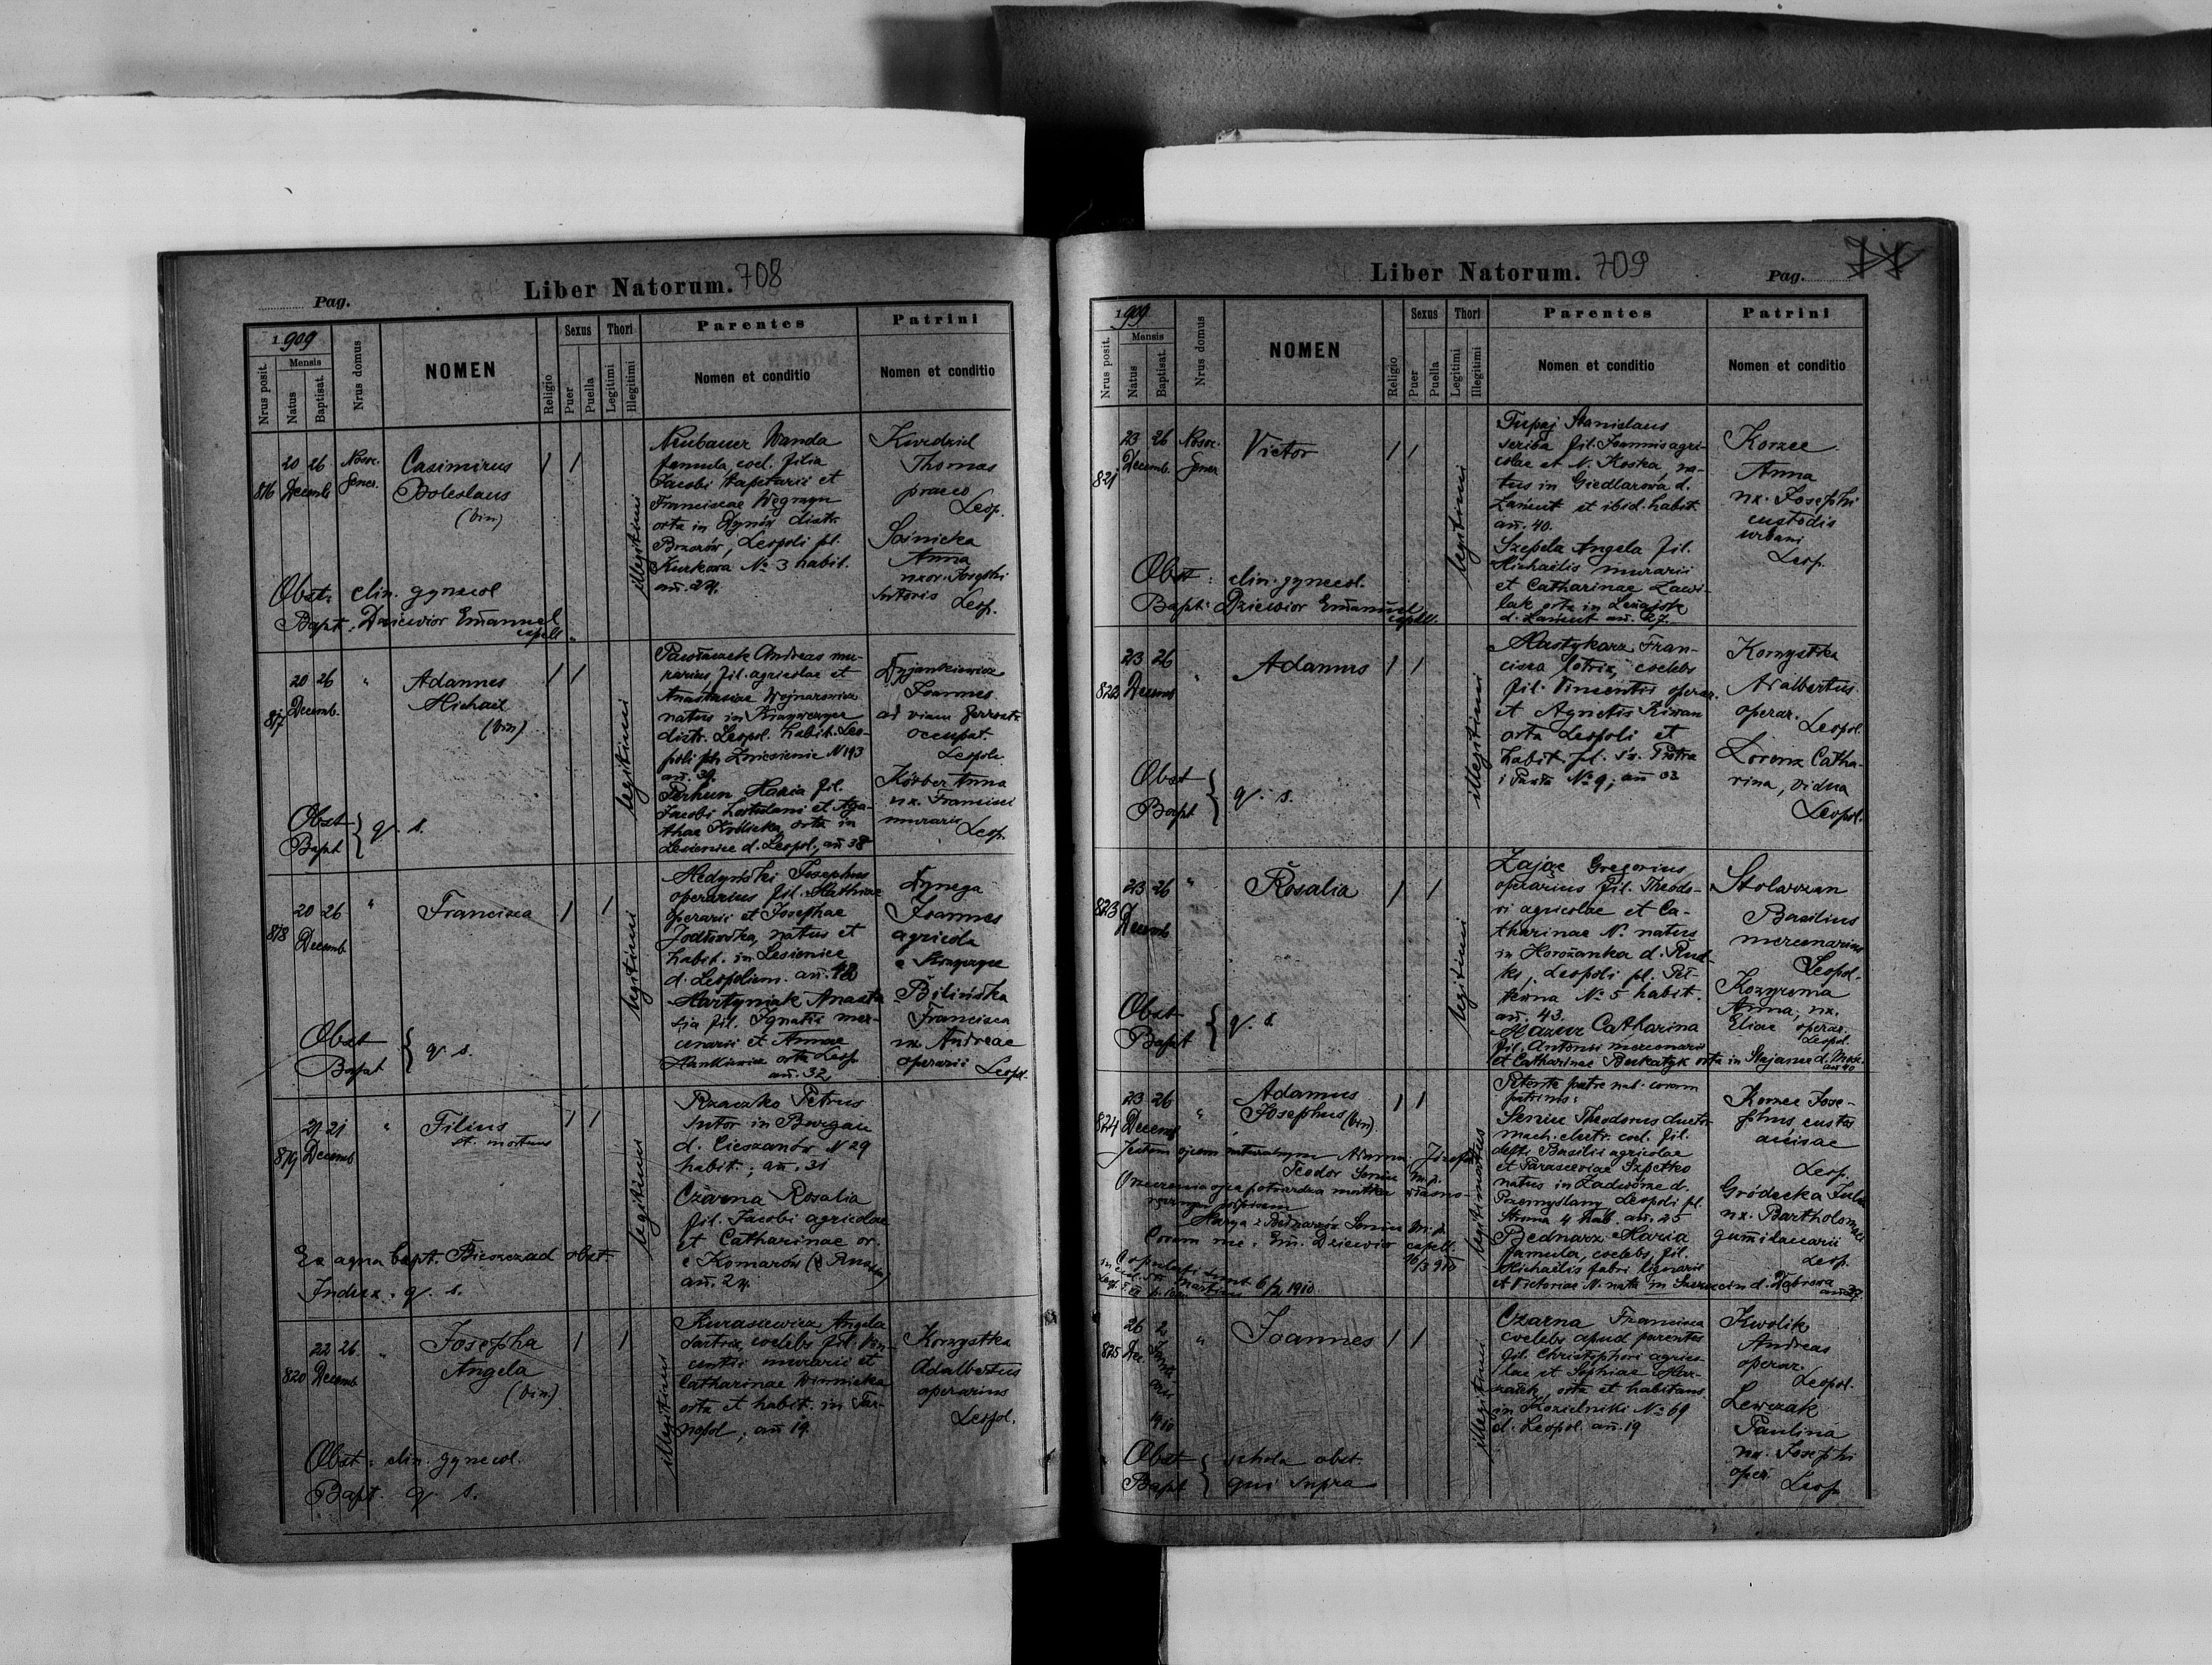 Pag.
Liber Natorum. 708
1909
Nrus posit.
Mensis
Natus
Baptisat.
Nrus domus
NOMEN
Religio
Sexus
Puer
Puella
Thori
Legitimi
Illegitimi
Parentes
Nomen et conditio
Patrini
Nomen et conditio
816
20 26
Decemb
Nosoc.
Gener.
Casimirus
Boleslaus
(bin)
1 1
illegitimi
Neubauer Wanda
famula, coel. filia
Jacobi tapetarii et
Franciscae Węgrzyn
orta in Dynów distr.
Brzozów, Leopoli pl.
Kurkowa № 3 habit.
an. 24.
Thomas
praeco
Leop.
Sośnicka
Anna
uxor. Josephi
sutoris Leop.
Obst: clin. gynecol
Bapt: Dziewior Emanuel
capell.
817
20 26
Decemb.
"
Adamus
Michael
(bin)
1 1
legitimi
Andreas mu-
rarius, fil. agricolae et
Anastasiae Wojnarowicz
natus in Krzywczyce
distr. Leopol. habit. Leo-
poli ph Zniesienie N 193
an. 39.
Maria fil.
Jacobi et Aga-
thae orta in
Lesienice d. Leopol., an 38
Joannes
ad viam ferrat.
occupat.
Leopoli
Körber Anna
ux. Francisci
muraris Leop.
Obst
Bapt } q. s.
818
20 26
Decemb
"
Francisca
1 1
legitimi
Medyński Josephus
operarius fil. Mathiae
operarii et Josephae
Jodłowska, natus et
habit. in Lesienice
d. Leopolim. an.
Martyniak Anasta
sia fil. Ignatii mer-
cenarii et Annae
orta Leop.
an. 32
Dynega
Joannes
agricola
e Krzywczyce
Bilińska
Francisca
ux. Andreae
operarii Leopol.
Obst
Bapt } q. s.
819
21 21
Decemb
"
Filius
st. mortuus
1 1
legitimi
Rzaczko Petrus
sutor in Burgau
d. Cieszanów N 29
habit.; an. 31
Czarna Rosalia
fil. Jacobi agricolae
et Catharinae or.
e Komarów
an. 24.
Ex aqua bapt. Bieszczad obst.
Index. q. s.
820
22 26
Decemb
"
Josepha
Angela
(bin)
1 1
illegitimi
Kurasiewicz Angela
sartrix, coelebs fil. Vin-
centii murarii et
Catharinae Winnicka
orta et habit. in Tar-
nopol; an 19.
Komystka
Adalbertus
operarius
Leopol.
Obst: clin. gynecol.
Bapt. q. s.
Liber Natorum. 709
Pag.
1909
Nrus posit.
Mensis
Natus
Baptisat.
Nrus domus
NOMEN
Religio
Sexus
Puer
Puella
Thori
Legitimi
Illegitimi
Parentes
Nomen et conditio
Patrini
Nomen et conditio
821
23 26
Decemb.
Nosoc.
Gener
Victor
1 1
legitimi
Tupaj Stanislaus
scriba fil. Joannis agri-
colae et N. Kostka, na-
tus in Giedlarowa d.
Łańcut et ibid. habit
an. 40.
Szepela Angela fil.
Michaelis murarii
et Catharinae Zawi-
lak orta in Leżajsk
d. Łańcut an. 27.
Korzec
Anna
ux. Josephi
custodis
urbani
Leop.
Obst: clin. gynecol.
Bapt: Dziewior Emanuel
capell.
822
23 26
Decemb
"
Adamus
1 1
illegitimi
Mastykarz Fran-
cisca, lotrix, coelebs
fil. Vincentii operar.
et Agnetis
orta Leopoli et
habit. pl. św. Piotra
i Pawła № 9; an 32
Komystka
Adalbertus
operar.
Leopol.
Lorenz Catha-
rina, vidua
Leopol.
Obst
Bapt } q. s.
823
23 26
Decemb
"
Rosalia
1 1
legitimi
Zając Gregorius
operarius fil. Theodo-
ri agricolae et Ca-
tharinae N. natus
in Horożanka d. Rud-
ki, Leopoli pl. Peł-
tewna № 5 habit.
an. 43.
Mazur Catharina
fil. Antonii mercenarii
et Catharinae orta in d. Mosc.
an 40
Stolarzan
Basilius
mercenarius
Leopol.
Anna, ux.
Eliae operar.
Leopol.
Obst
Bapt } q. s.
824
23 26
Decemb
"
Adamus
Josephus (bin)
1 1
legitimatus
Petente patre nat. coram
patrinis:
Theodorus ductor
mach. electr. coel. fil.
defti Basilii agricolae
et Parasceviae Szpetko
natus in Zadwórze d.
Przemyślany Leopoli pl.
Stroma 4 hab. an. 25
Bednarz Maria
famula, coelebs, fil.
Michaelis fabri lignarii
et Victoriae N. nata in d. Dąbrowa
Korzec Jose-
phus custos
Leop.
Gródecka Julia
ux. Bartholomaei
Leop.
Jestem ojcem naturalnym Adama Józefa
Teodor
Orzeczenie ojca potwierdza matka własno-
ręcznym podpisem
Marya z Bednarzów
Coram me: Em. Dziewior capell.
16/3 910
Copulati sunt
6/2 1910.
825
26 2
Dec. Janu
arii
1910
"
Joannes
1 1
illegitimi
Czarna Francisca
coelebs apud parentes
fil. Christophori agrico-
lae et Sophiae
orta et habitans
in Kozielniki № 69
d. Leopol. an. 19
Kwolik
Andreas
operar.
Leopol.
Lewczak
Paulina
ux. Josephi
oper.
Leop.
Obst
Bapt } schola obst.
qui supra